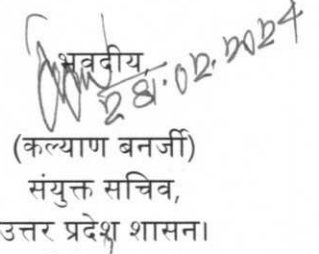 भवदीय
28.02.2024
(कल्याण बनर्जी)
संयुक्त सचिव,
उत्तर प्रदेश शासन।